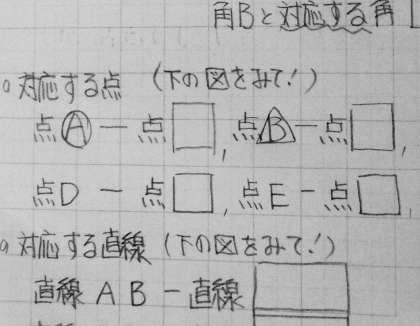 角Bと対応する角
○対応する点 (下の図をみて!)
点Ⓐー点□, 点Bー点□,
点Dー点□, 点Eー点□,
○対応する直線 (下の図をみて!)
直線ABー直線□